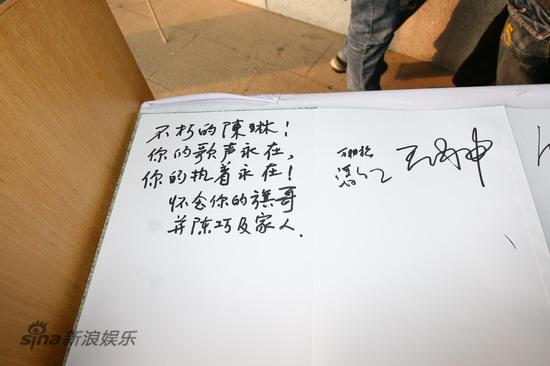 不朽的陳琳！
你的歌声永在,
你的执着永在！
怀念你的旗哥
并陈巧及家人.
sina新浪娱乐